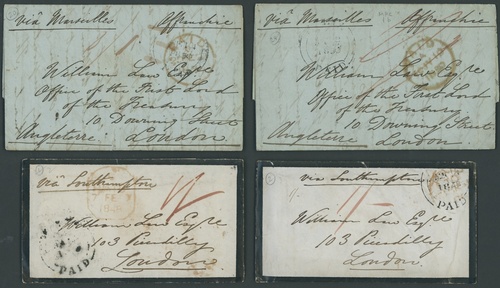 via Marseilles Affranchie
William Law Esqre
Office of the First Lord
of the Treasury
10 Downing Street
Angleterre London
via Marseilles Affranchie
William Law Esqre
Office of the First Lord
of the Treasury
10 Downing Street
Angleterre London
via Southampton
William Law Esqre
103 Piccadilly
London
PAID
via Southampton
William Law Esqre
103 Piccadilly
London
PAID